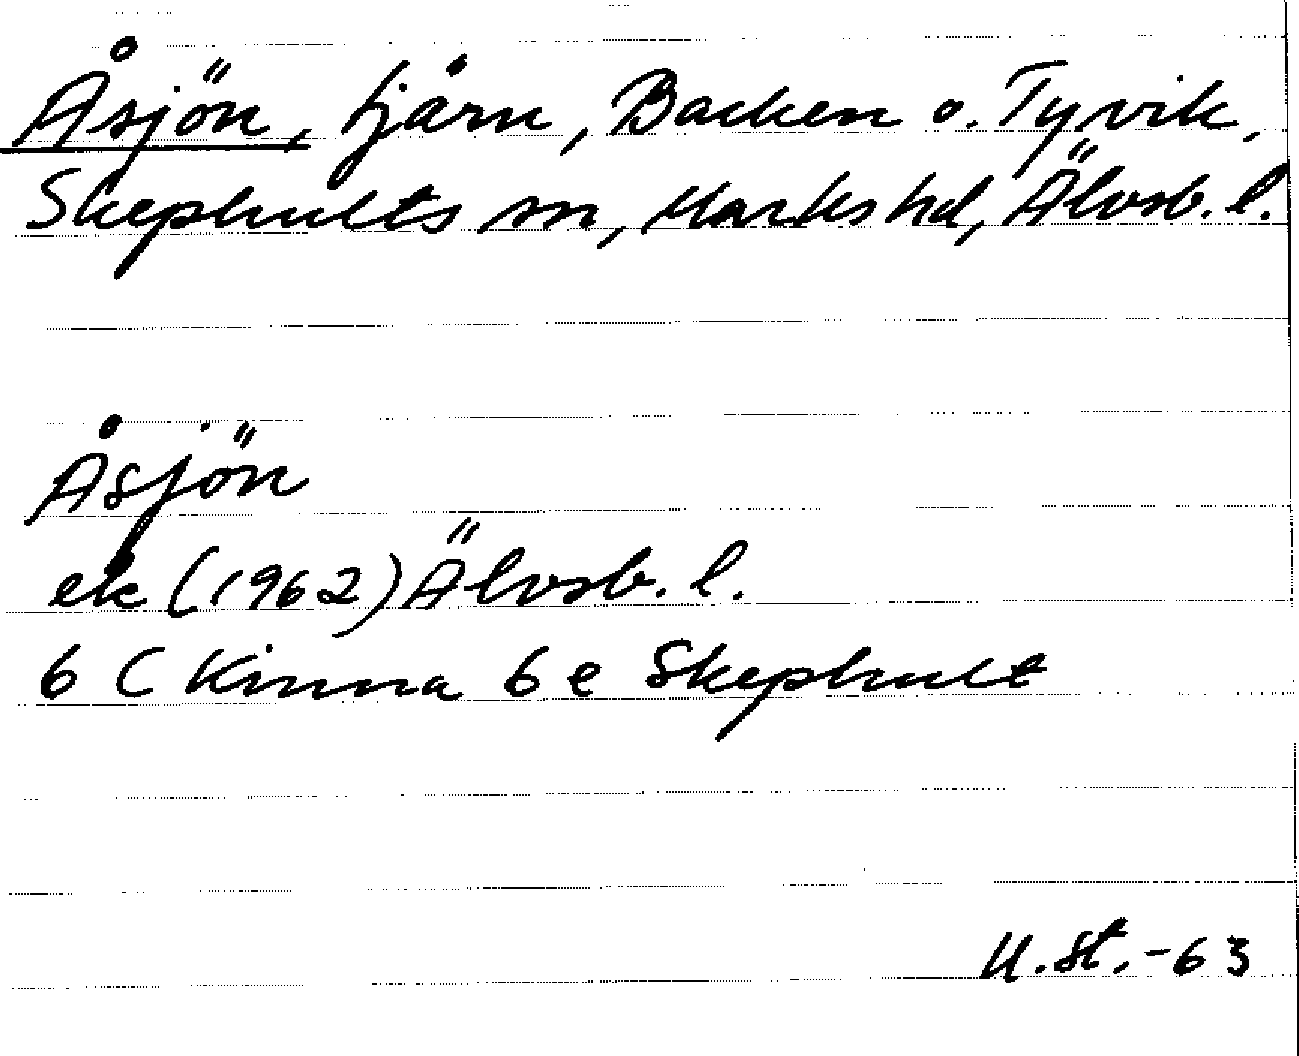 Åsjön, tjärn, Backen o. Tyvik,
Skephults sn, Marks hd, Älvsb. l.
Åsjön
ek (1962) Älvsb. l.
6 C Kinna 6 e Skephult
U. St. -63